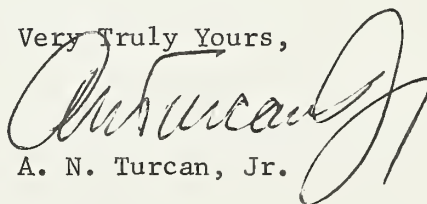 Very Truly Yours,
AN Turcan Jr
A. N. Turcan, Jr.